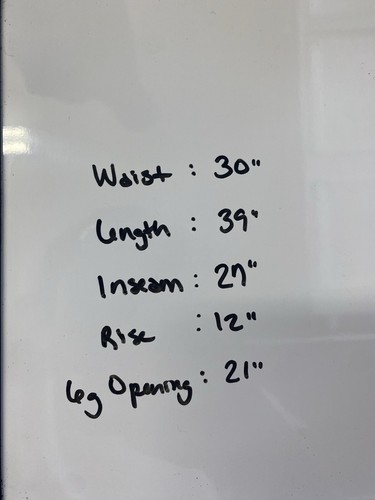 Waist : 30"
Length : 39"
Inseam : 27"
Rise : 12"
Leg Opening : 21"